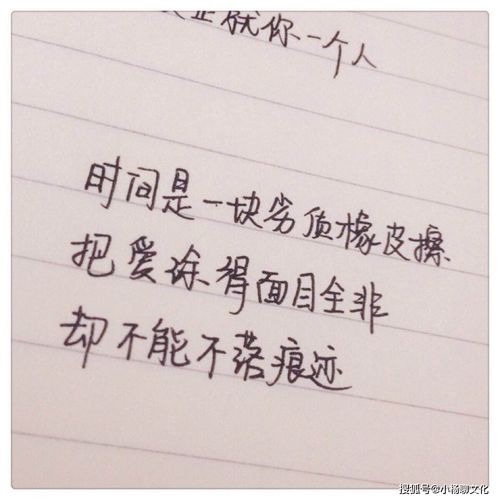 就你一个人
时间是一块劣质橡皮擦
把爱涂得面目全非
却不能不落痕迹
搜狐号@小杨聊文化